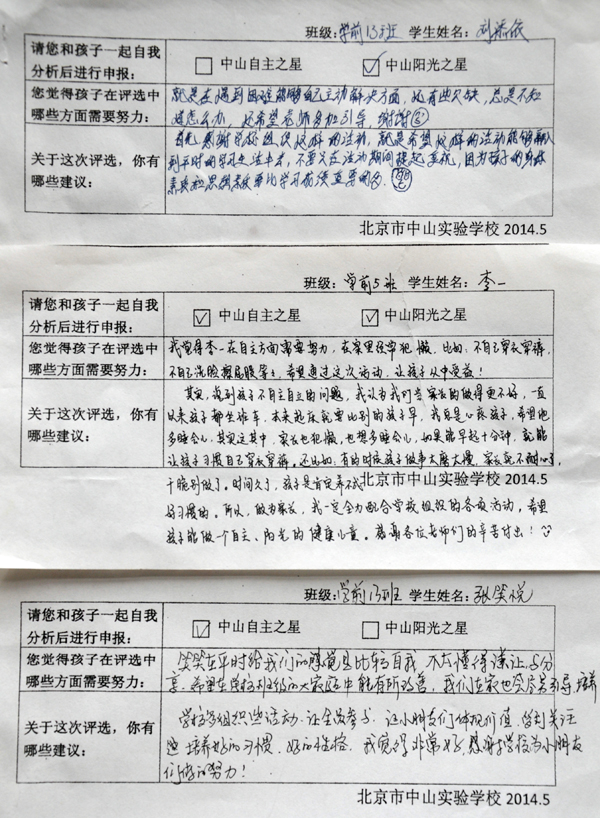 班级:学前13班 学生姓名:刘添依
请您和孩子一起自我
分析后进行申报:
中山自主之星
中山阳光之星
您觉得孩子在评选中
哪些方面需要努力:
就是在遇到困难能够自己主动解决方面,还有些欠缺,总是不知
道怎么办,还希望老师多加引导,谢谢
关于这次评选,你有
哪些建议:
首先感谢学校组织这样的活动,就是希望这样的活动能够融入
到平时的学习生活中来,不要只在活动期间提起重视,因为孩子的身体
素质和思想教育比学习成绩重要的多。
北京市中山实验学校 2014.5
班级:学前5班 学生姓名:李一
请您和孩子一起自我
分析后进行申报:
中山自主之星
中山阳光之星
您觉得孩子在评选中
哪些方面需要努力:
我觉得李一在自主方面需要努力,在家里经常犯懒。比如:不自己穿衣穿裤,
不自己洗脸擦屁股等等,希望通过这次活动,让孩子从中受益!
关于这次评选,你有
哪些建议:
其实,说到孩子不自主自立的问题,我认为我们当家长的做得更不好,一直
以来孩子都坐班车,本来起床就要比别的孩子早,我总是心疼孩子,希望他
多睡会儿,其实这其中,家长也犯懒,也想多睡会儿,如果能早起十分钟,就能
让孩子习惯自己穿衣穿裤。还比如:有的时候孩子做事太磨太慢,家长就不耐心了,
干脆别做了。时间久了,孩子是肯定养不成
北京市中山实验学校 2014.5
好习惯的。所以,做为家长,我一定全力配合学校组织的各项活动,希望
孩子能做一个自主、阳光的健康儿童。感谢各位老师们的辛苦付出!
班级:学前13班 学生姓名:张笑悦
请您和孩子一起自我
分析后进行申报:
中山自主之星
中山阳光之星
您觉得孩子在评选中
哪些方面需要努力:
笑笑在平时给我们的感觉是比较自我,不太懂得谦让,与分
享。希望在学校班级的大家庭中能有所改善,我们在家也会尽量引导,培养
关于这次评选,你有
哪些建议:
学校多组织些活动,让全员参与,让小朋友们体现价值,得到关注
培养好的习惯,好的性格,我觉得非常好,感谢学校为小朋友
们做的努力!
北京市中山实验学校 2014.5